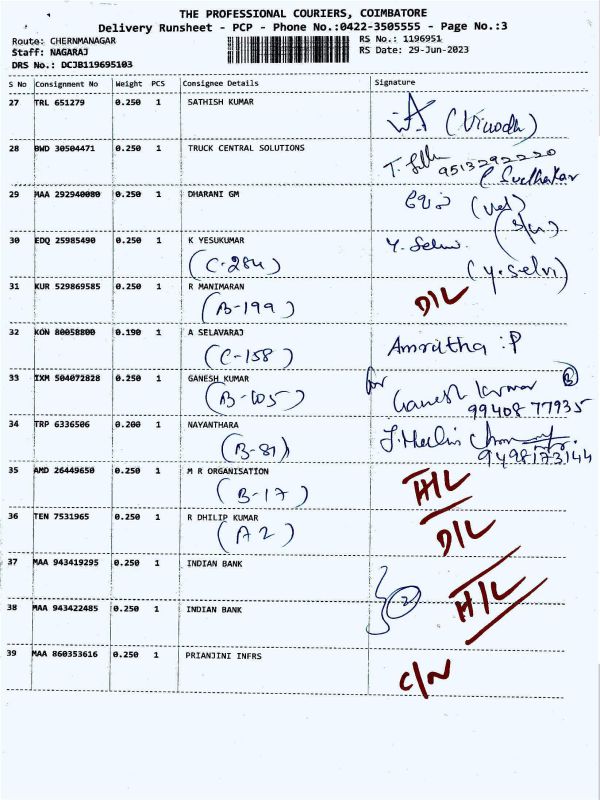 THE PROFESSIONAL COURIERS, COIMBATORE
Delivery Runsheet - PCP - Phone No.:0422-3505555 - Page No.:3
Route: CHERNMANAGAR
Staff: NAGARAJ
DRS No.: DCJB119695103
RS No.: 1196951
RS Date: 29-Jun-2023
S No Consignment No Weight PCS Consignee Details Signature
27 TRL 651279 0.250 1 SATHISH KUMAR
(Vinodh)
28 BWD 30504471 0.250 1 TRUCK CENTRAL SOLUTIONS
9513292220
P Sudhakar
29 MAA 292940080 0.250 1 DHARANI GM
30 EDQ 25985490 0.250 1 K YESUKUMAR
Y. Selvi
(C-284) (y.selvi)
31 KUR 529869585 0.250 1 R MANIMARAN
(B-199) D/L
32 KON 80058800 0.190 1 A SELAVARAJ
(C-158) Amrutha :P
33 IXM 504072828 0.250 1 GANESH KUMAR
for Ganesh Kumar B
(B-105) 99408 77935
34 TRP 6336506 0.200 1 NAYANTHARA
(B-81) 9498173144
35 AMD 26449650 0.250 1 M R ORGANISATION
(B-17) H/L
36 TEN 7531965 0.250 1 R DHILIP KUMAR
(A2) D/L
37 MAA 943419295 0.250 1 INDIAN BANK
2 H/L
38 MAA 943422485 0.250 1 INDIAN BANK
39 MAA 860353616 0.250 1 PRIANJINI INFRS
C/N